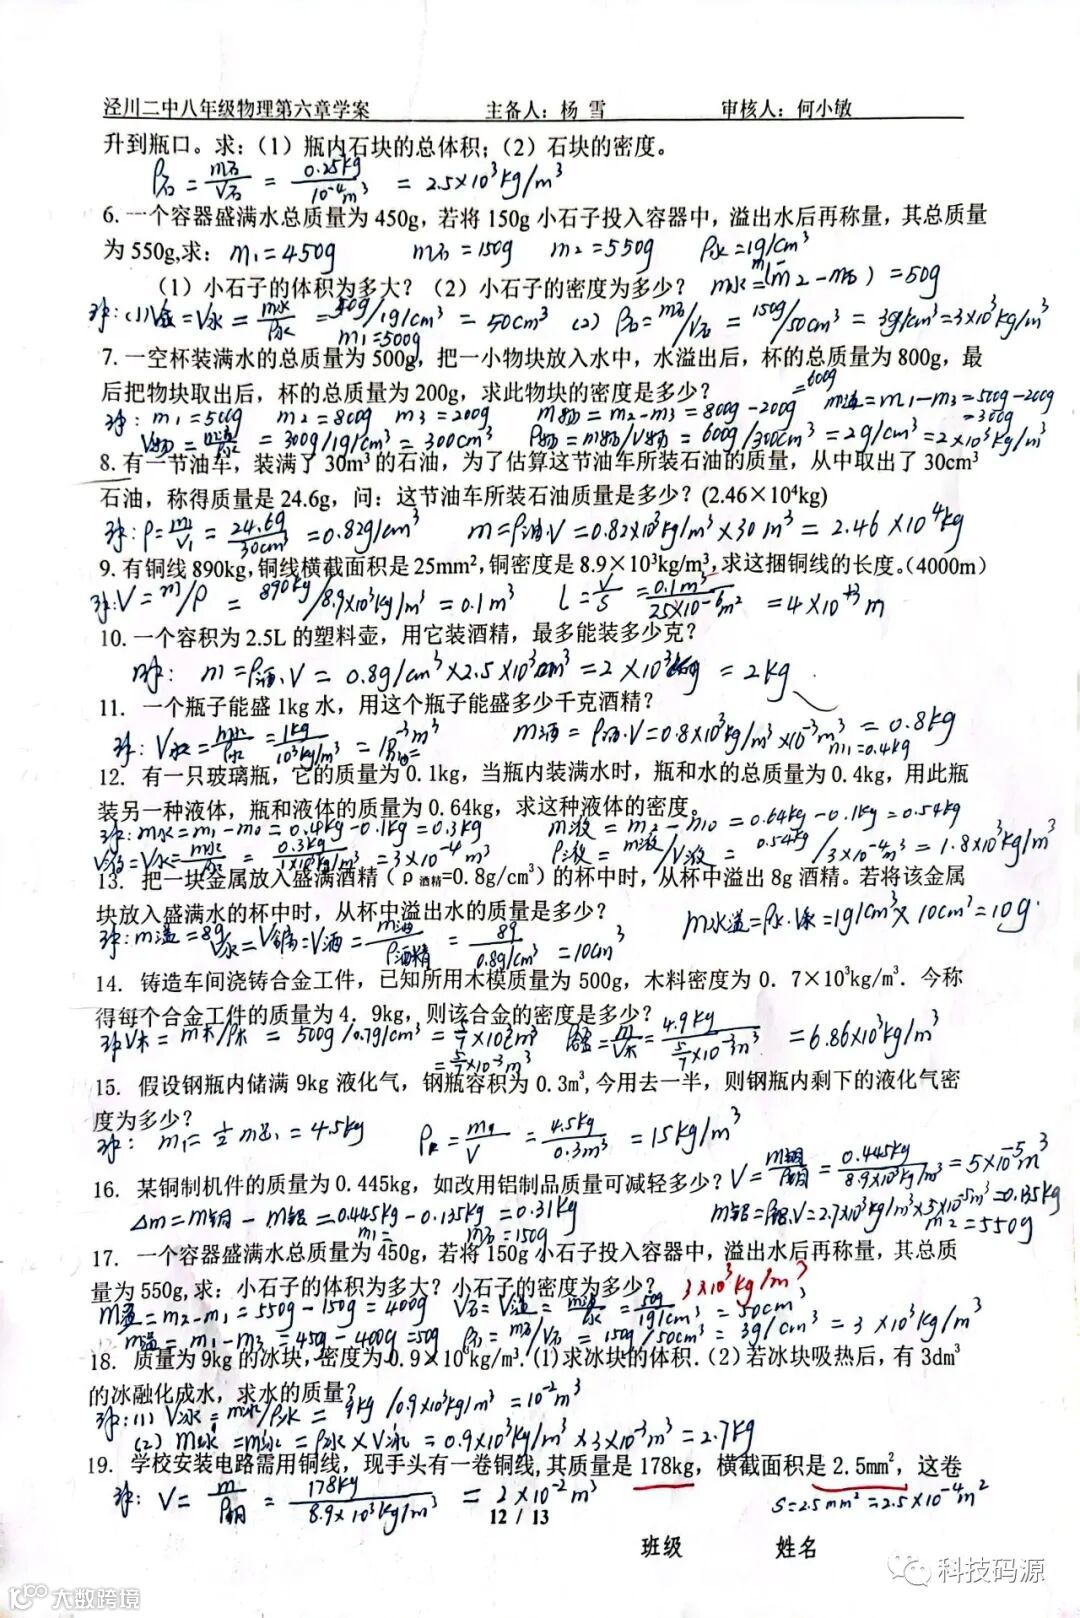 泾川二中八年级物理第六章学案 主备人：杨 雪 审核人：何小敏
升到瓶口。求：（1）瓶内石块的总体积；（2）石块的密度。
ρ石=m石/V石=0.25kg/10⁻⁴m³=2.5×10³kg/m³
6.一个容器盛满水总质量为450g，若将150g小石子投入容器中，溢出水后再称量，其总质量
为550g,求： m₁=450g m石=150g m₂=550g ρ水=1g/cm³
（1）小石子的体积为多大？（2）小石子的密度为多少？
=50cm³ (2) ρ石=m石/V石=150g/50cm³=3g/cm³=3×10³kg/m³
m₁=500g
7.一空杯装满水的总质量为500g，把一小物块放入水中，水溢出后，杯的总质量为800g，最
后把物块取出后，杯的总质量为200g，求此物块的密度是多少？
=600g m溢=m₁-m₃=500g-200g
解：m₁=500g m₂=800g m₃=200g m物=m₂-m₃=800g-200g =300g
V物=m溢/ρ水=300g/1g/cm³=300cm³ ρ物=m物/V物=600g/300cm³=2g/cm³=2×10³kg/m³
8.有一节油车，装满了30m³的石油，为了估算这节油车所装石油的质量，从中取出了30cm³
石油，称得质量是24.6g，问：这节油车所装石油质量是多少？(2.46×10⁴kg)
解：ρ=m₁/V₁=24.6g/30cm³=0.82g/cm³ m=ρ油·V=0.82×10³kg/m³×30m³=2.46×10⁴kg
9.有铜线890kg,铜线横截面积是25mm²,铜密度是8.9×10³kg/m³,求这捆铜线的长度。(4000m)
解：V=m/ρ=890kg/8.9×10³kg/m³=0.1m³ L=V/S=0.1m³/25×10⁻⁶m²=4×10⁺³m
10.一个容积为2.5L的塑料壶，用它装酒精，最多能装多少克？
解：m=ρ酒·V=0.8g/cm³×2.5×10³cm³=2×10³g=2kg
11. 一个瓶子能盛1kg水，用这个瓶子能盛多少千克酒精？
解：V水=m水/ρ水=1kg/10³kg/m³ m酒=ρ酒·V=0.8×10³kg/m³×10⁻³m³=0.8kg
m₁=0.4kg
12. 有一只玻璃瓶，它的质量为0.1kg，当瓶内装满水时，瓶和水的总质量为0.4kg，用此瓶
装另一种液体，瓶和液体的质量为0.64kg，求这种液体的密度。
解：m水=m₁-m₀=0.4kg-0.1kg=0.3kg m液=m₂-m₀=0.64kg-0.1kg=0.54kg
V液=V水=m水/ρ水=0.3kg/1×10³kg/m³=3×10⁻⁴m³ ρ液=m液/V液=0.54kg/3×10⁻⁴m³=1.8×10³kg/m³
13. 把一块金属放入盛满酒精（ρ酒精=0.8g/cm³）的杯中时，从杯中溢出8g酒精。若将该金属
块放入盛满水的杯中时，从杯中溢出水的质量是多少？ m水溢=ρ水·V水=1g/cm³×10cm³=10g.
解：m溢=8g V水=V铜=V酒=m酒/ρ酒精=8g/0.8g/cm³=10cm³
14. 铸造车间浇铸合金工件，已知所用木模质量为500g，木料密度为0.7×10³kg/m³．今称
得每个合金工件的质量为4.9kg，则该合金的密度是多少？
解V木=m木/ρ木=500g/0.7g/cm³=5/7×10³cm³ ρ合金=m/V木=4.9kg/5/7×10⁻³m³=6.86×10³kg/m³
=5/7×10⁻³m³
15. 假设钢瓶内储满9kg液化气，钢瓶容积为0.3m³,今用去一半，则钢瓶内剩下的液化气密
度为多少？
解：m₁=½m总=4.5kg =4.5kg/0.3m³=15kg/m³
V=m铜/ρ铜=0.445kg/8.9×10³kg/m³=5×10⁻⁵m³
16. 某铜制机件的质量为0.445kg，如改用铝制品质量可减轻多少？
△m=m铜-m铝=0.445kg-0.135kg=0.31kg m铝=ρ铝·V=2.7×10³kg/m³×5×10⁻⁵m³=0.135kg
m₁= m石=150g m₂=550g
17. 一个容器盛满水总质量为450g，若将150g小石子投入容器中，溢出水后再称量，其总质
量为550g,求：小石子的体积为多大？小石子的密度为多少？ 3×10³kg/m³
=m₂-m₁=550g-150g=400g V石=V溢=m溢/ρ水=50g/1g/cm³=50cm³
m溢=m₁-m₃=450g-400g=50g ρ石=m石/V石=150g/50cm³=3g/cm³=3×10³kg/m³
18. 质量为9kg的冰块,密度为0.9×10³kg/m³.(1)求冰块的体积.(2)若冰块吸热后,有3dm³
的冰融化成水，求水的质量？
解：(1) V冰=m冰/ρ冰=9kg/0.9×10³kg/m³=10⁻²m³
(2) m水=m冰=ρ冰×V冰=0.9×10³kg/m³×3×10⁻³m³=2.7kg
19. 学校安装电路需用铜线，现手头有一卷铜线,其质量是178kg，横截面积是2.5mm²，这卷
解：V=m/ρ铜=178kg/8.9×10³kg/m³=2×10⁻²m³ S=2.5mm²=2.5×10⁻⁴m²
12 / 13
班级 姓名
科技码源
大数跨境